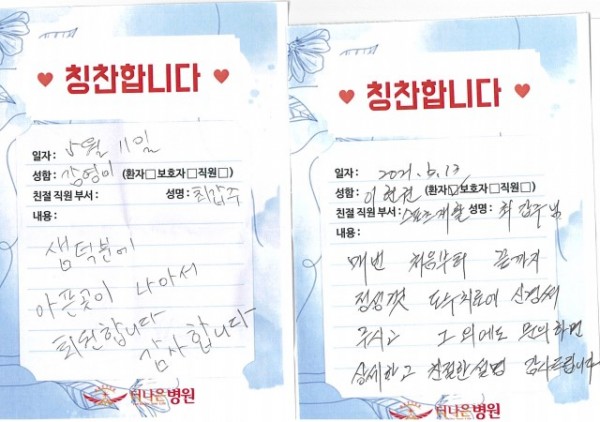 칭찬합니다
일자 : 5월 11일
성함 : 감영미 (환자□보호자□직원□)
친절 직원 부서 : 성명 : 최갑주
내용 :
샘 덕분에
아픈곳이 나아서
퇴원합니다
감사합니다
더나은병원
칭찬합니다
일자 : 2021. 5. 13
성함 : 이현진 (환자☑보호자□직원□)
친절 직원 부서 : 스포츠재활 성명 : 최갑주님
내용 :
매번 처음부터 끝까지
정성껏 도수치료에 신경써
주시고 그 외에도 문의하면
상세하고 친절한 설명 감사드립니다
더나은병원